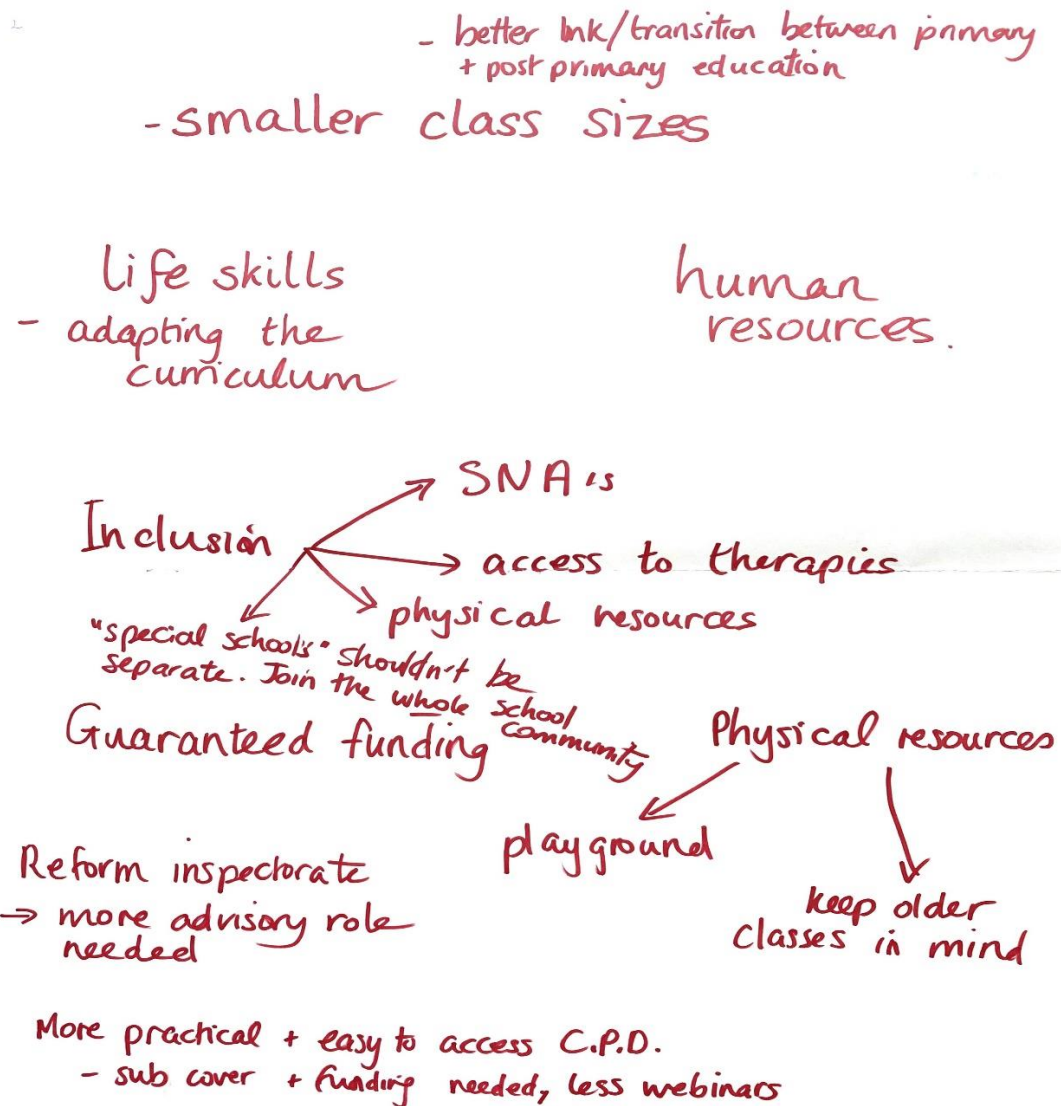 - better link/transition between primary
+ post primary education
- smaller class sizes
life skills
- adapting the
curriculum
human
resources.
Inclusion
SNA's
access to therapies
physical resources
"special schools" shouldn't be
separate. Join the whole school
community
Guaranteed funding
Physical resources
playground
keep older
classes in mind
Reform inspectorate
→ more advisory role
needed
More practical + easy to access C.P.D.
- sub cover + funding needed, less webinars